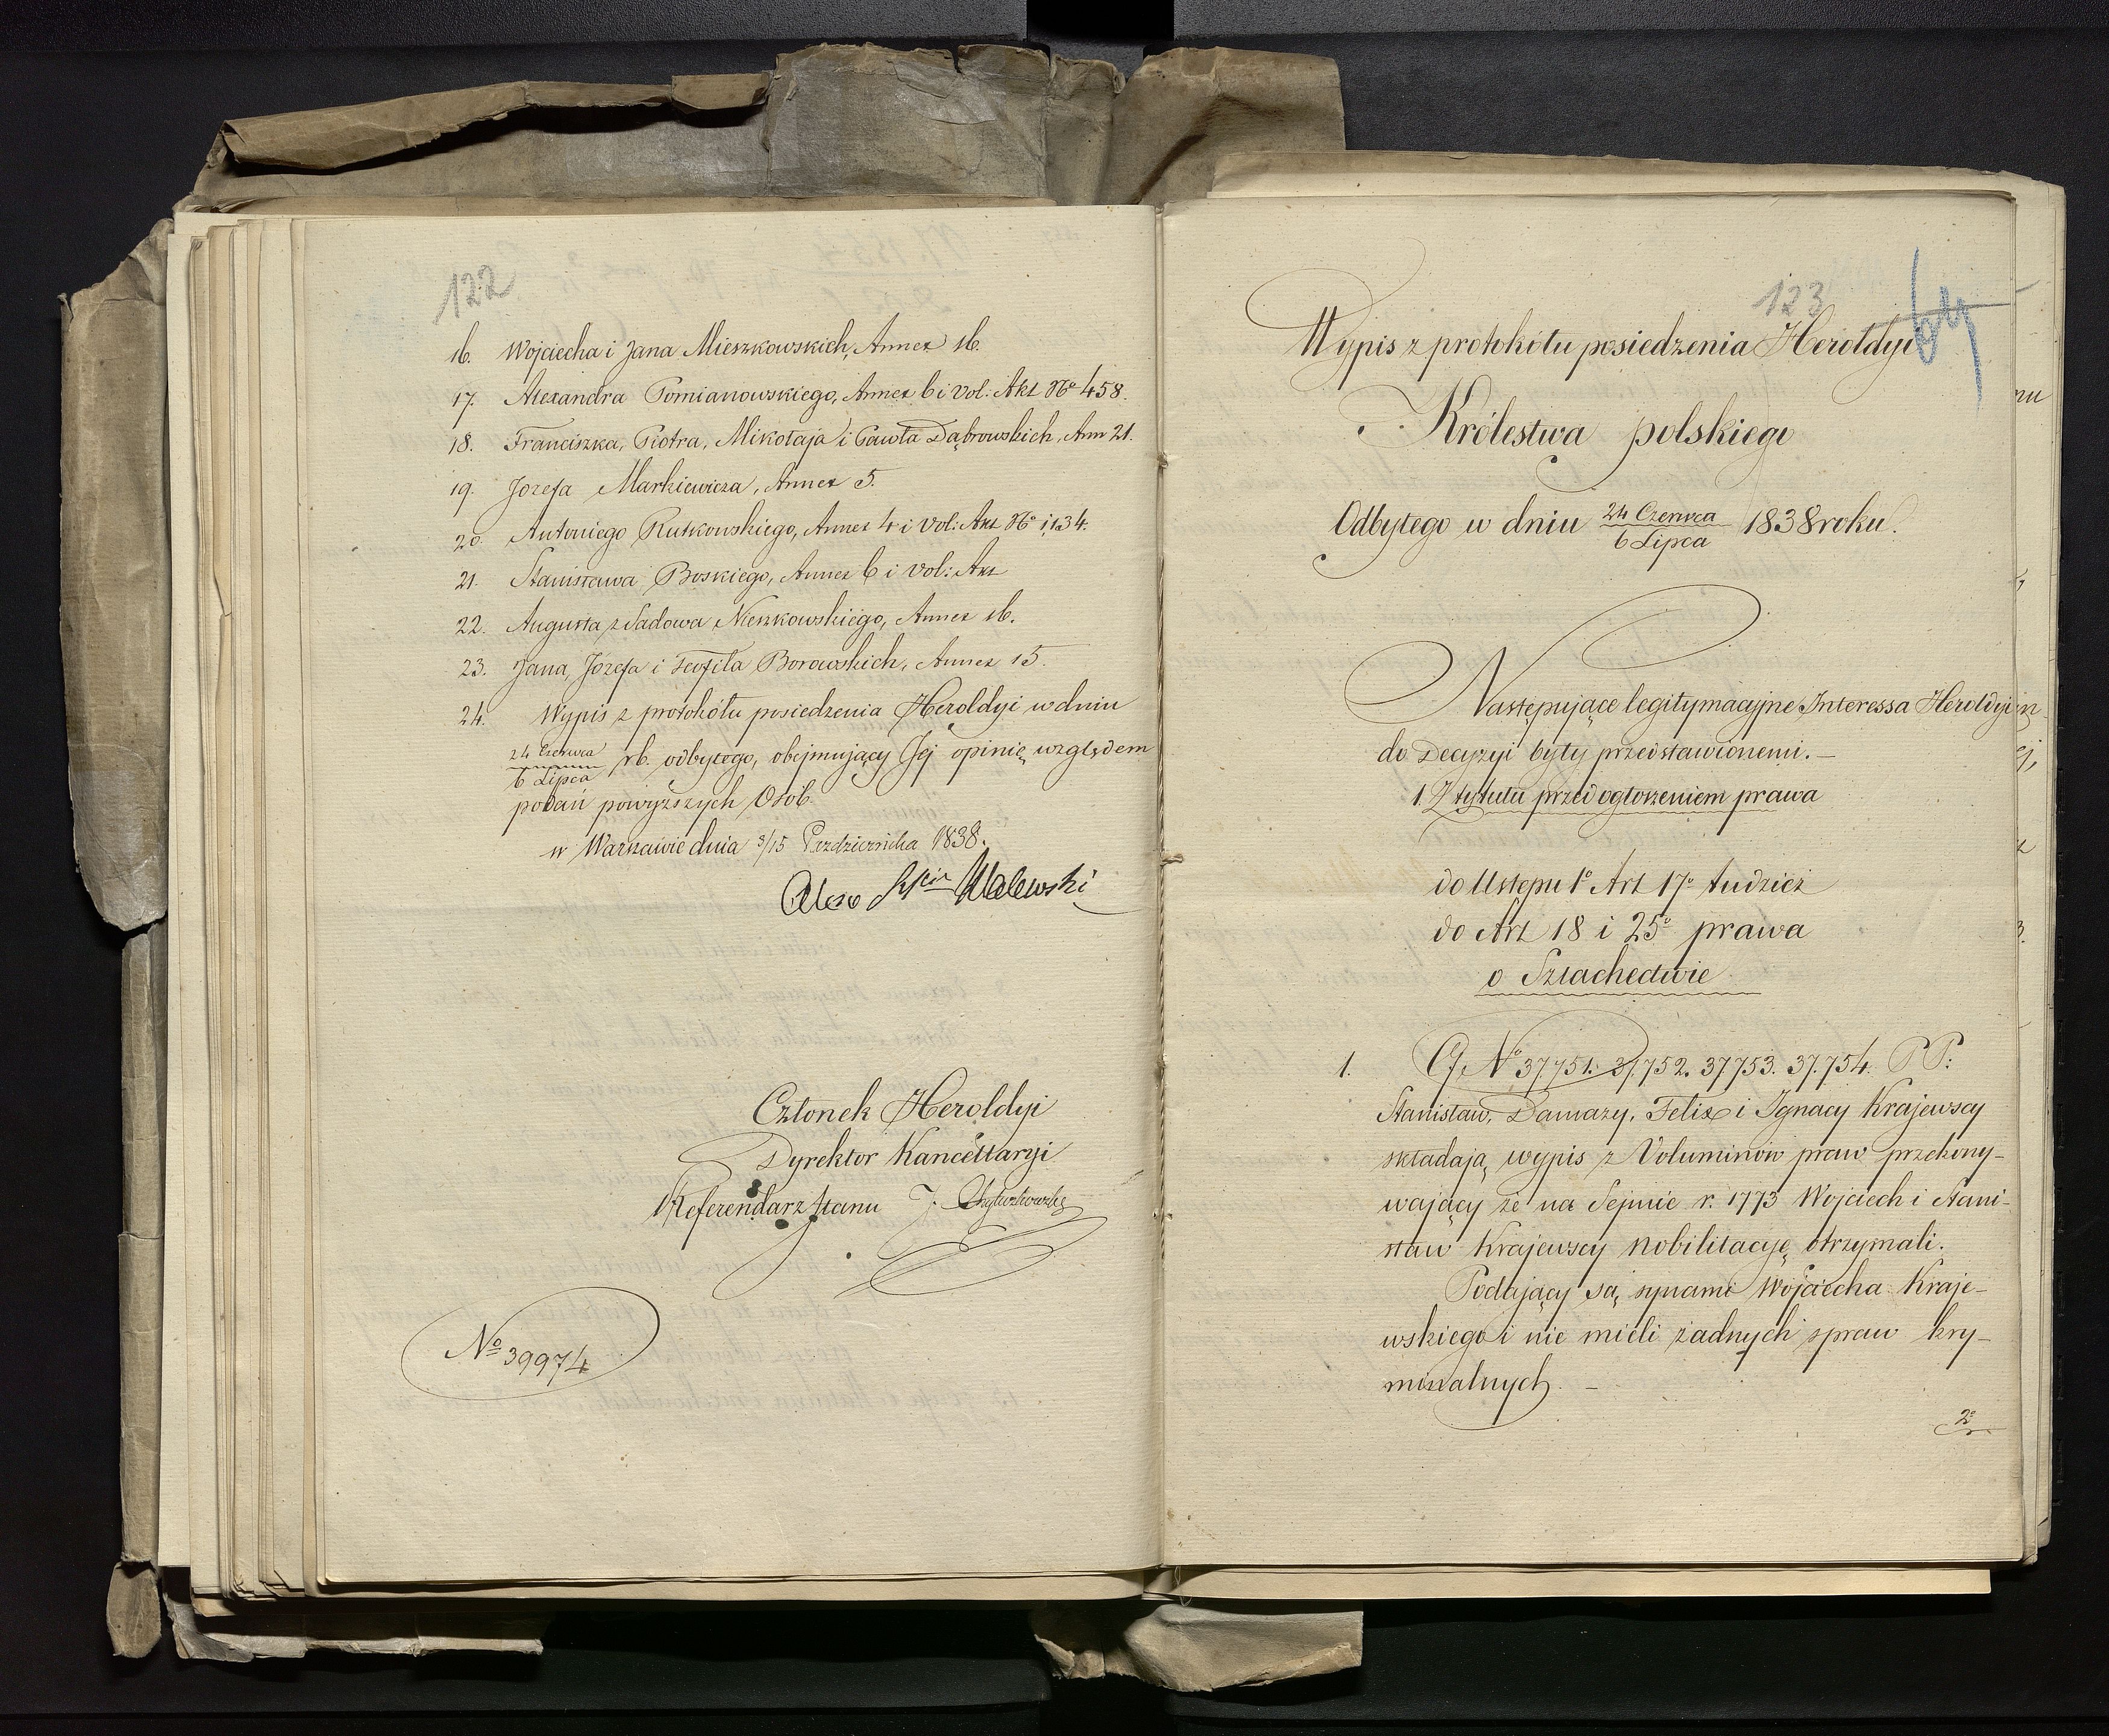 122
16. Wojciecha i Jana Mieszkowskich, Annex 16.
17. Alexandra Pomianowskiego, Annex 6 i Vol: Akt No 458.
18. Franciszka, Piotra, Mikołaja i Pawła Dąbrowskich, Ann 21.
19. Jozefa Markiewicza, Annex 5.
20. Antoniego Rutkowskiego, Annex 4 i Vol: Akt No 1134.
21. Stanisława Boskiego, Annex 6 i Vol: Akt
22. Augusta z Sadowa Nieszkowskiego, Annex 16.
23. Jana, Józefa i Teofila Borowskich, Annex 15.
24. Wypis z protokółu posiedzenia Heroldyi w dniu
24 Czerwca
6 Lipca rb. odbytego, obejmujący Jej opinię względem
podań powyższych Osób.
w Warszawie dnia 3/15 Pazdziernika 1838.
Alex Walewski
Członek Heroldyi
Dyrektor Kancellaryi
Referendarz Stanu J.
No 39974
123
64
Wypis z protokółu posiedzenia Heroldyi
Królestwa polskiego
Odbytego w dniu 24 Czerwca
6 Lipca 1838 roku.
Następujące legitymacyjne Interessa Heroldyi
do Decyzyi były przedstawionemi. —
1. Z tytułu przed ogłoszeniem prawa
do Ustępu 1o Art 17o tudzież
do Art 18 i 25o prawa
o Szlachectwie
1. No 37.751. 37.752. 37.753. 37.754. PP:
Stanisław, Damazy, Felix i Ignacy Krajewscy
składają wypis z Voluminów praw przekony-
wający że na Sejmie r. 1773 Wojciech i Stani-
sław Krajewscy Nobilitacyę otrzymali.
Podający są synami Wojciecha Kraje-
wskiego i nie mieli żadnych spraw kry-
minalnych. —
2o